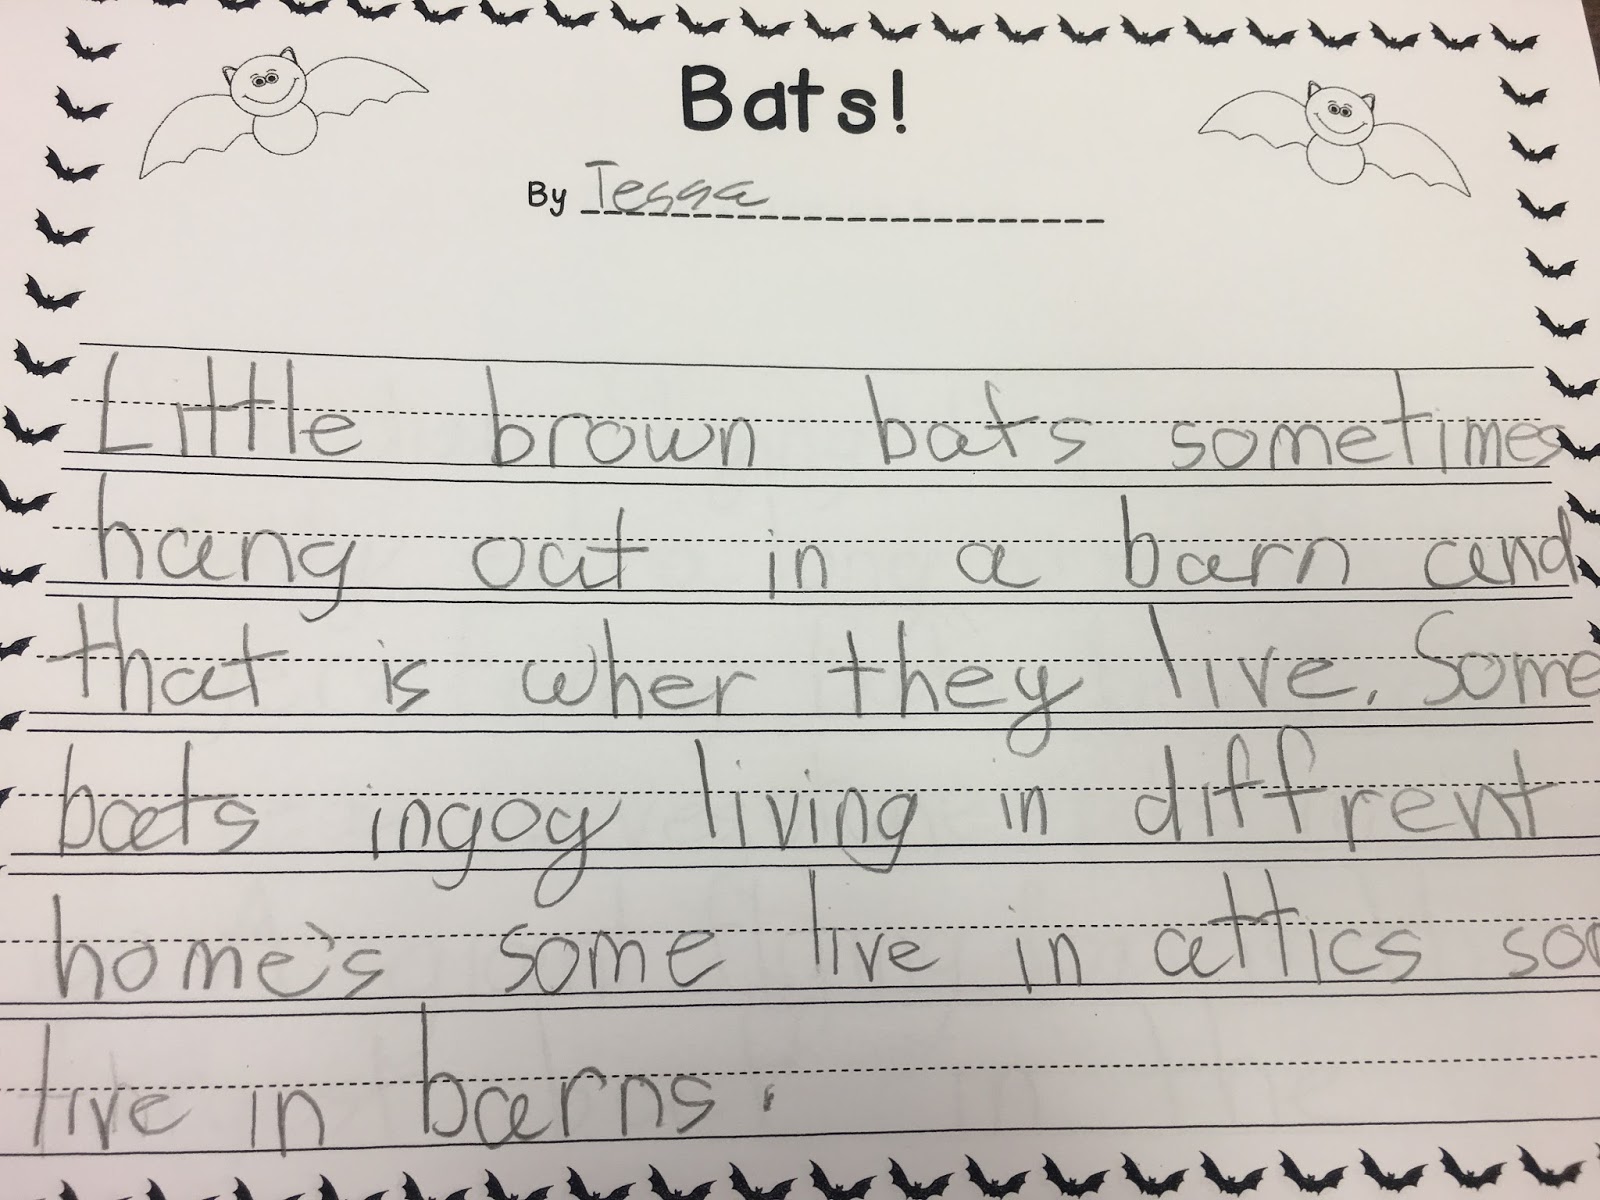 Bats!
By Tessa
Little brown bats sometimes
hang out in a barn and
that is wher they live. Some
bats ingoy living in diffrent
home's some live in attics
live in barns.